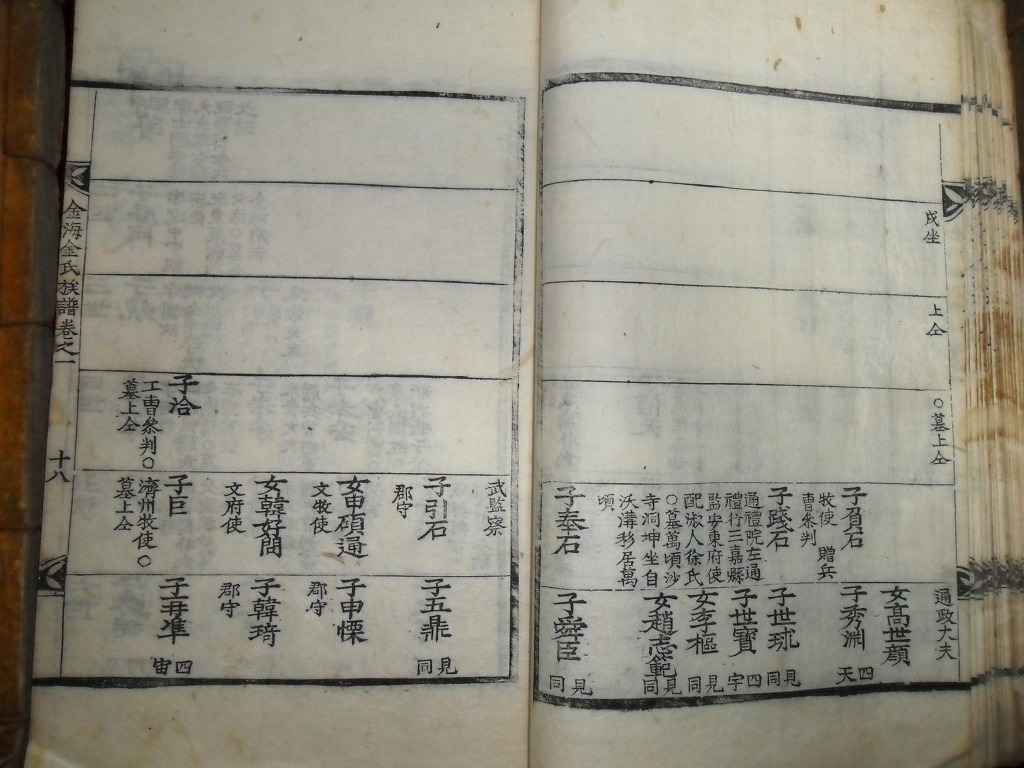 戌坐
上仝
○墓上仝
子負石
牧使 贈兵
曹叅判
子踐石
通禮院左通
禮行三嘉縣
監安東府使
配淑人徐氏
○墓萬頃沙
寺洞坤坐自
沃溝移居萬
頃
子奉石
通政大夫
女高世顔
子秀渊
四
天
子世球
見
同
子世寶
四
宇
女李樞
見
同
女趙志範
見
同
子舜臣
見
同
子洽
工曹叅判○
墓上仝
武監察
子引石
郡守
女申碩通
文牧使
女韓好問
文府使
子巨
濟州牧使○
墓上仝
子五鼎
見
同
子申慄
郡守
子韓琦
郡守
四
宙
金海金氏族譜卷之一
十八